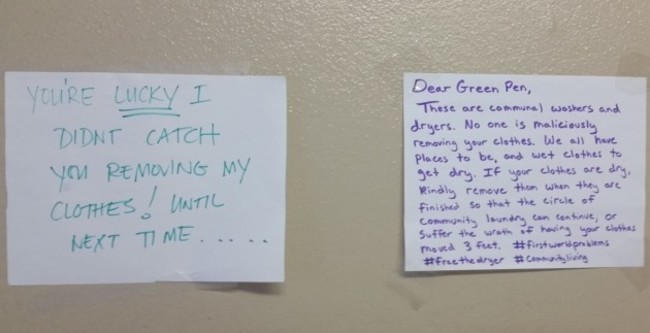 YOU'RE LUCKY I
DIDNT CATCH
YOU REMOVING MY
CLOTHES! UNTIL
NEXT TIME.....
Dear Green Pen,
These are communal washers and
dryers. No one is maliciously
removing your clothes. We all have
Places to be, and wet clothes to
get dry. If your clothes are dry,
Kindly remove them when they are
finished so that the circle of
community laundry can continue, or
Suffer the wrath of having your clothes
moved 3 feet. #firstworldproblems
#freethedryer #Communityliving